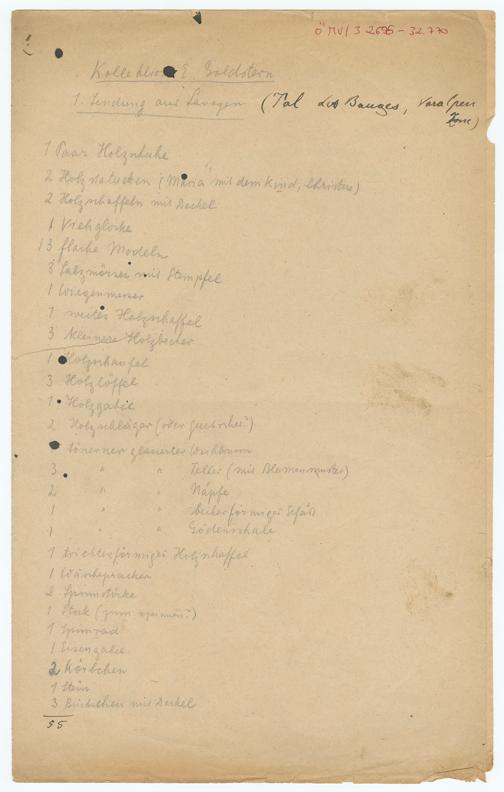 ÖMV/3 2695 - 32.770
Kollektion E. Goldstern
1. Sendung aus Savoyen (Tal des Bauges, Voralpen
Zone)
1 Paar Holzschuhe
2 Holzstatuetten ("Maria" mit dem Kind, Christus)
2 Holzschaffeln mit Deckel
1 Viehglocke
13 flache Modeln
3 Salzmörser mit Stempfel
1 Wiegenmesser
1 weites Holzschaffel
3 kleinere Holzbecher
1 Holzschaufel
3 Holzlöffel
1 Holzgabel
2 Holzschläger (oder
tönerner glasierter
3 " " Teller (mit Blumenmuster)
2 " " Näpfe
1 " " becherförmiges Gefäß
1 " " Godenschale
1 trichterförmiges Holzschaffel
1 Wäschepracker
2 Spinnstöcke
1 Stock (zum
1 Spinnrad
1 Eisengabel
2 Körbchen
1 Stein
3 Büchschen mit Deckel
55